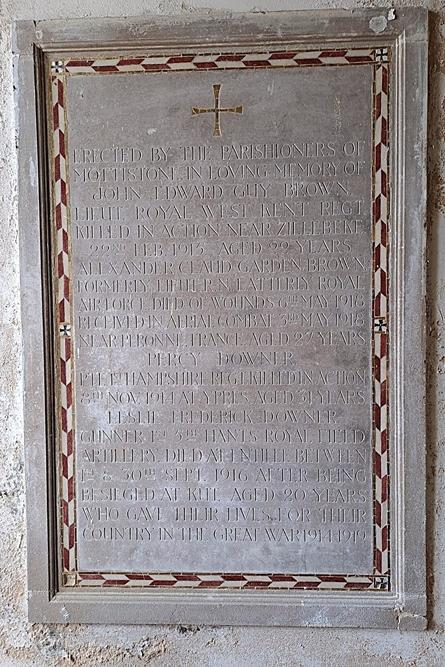 ERECTED BY THE PARISHIONERS OF
MOTTISTONE IN LOVING MEMORY OF
JOHN EDWARD GUY BROWN
LIEUT. ROYAL WEST KENT REGT.
KILLED IN ACTION NEAR ZILLEBEKE
22ND FEB. 1915 AGED 22 YEARS
ALEXANDER CLAUD GARDEN BROWN
FORMERLY LIEUT. R.N. LATTERLY ROYAL
AIR FORCE DIED OF WOUNDS 6TH MAY 1918
RECEIVED IN AERIAL COMBAT 3RD MAY 1918
NEAR PERONNE, FRANCE, AGED 23 YEARS
PERCY DOWNER
PTE. HAMPSHIRE REGT. KILLED IN ACTION
NOV. 1914 AT YPRES AGED 31 YEARS
LESLIE FREDERICK DOWNER
GUNNER HANTS ROYAL FIELD
ARTILLERY, DIED AT BETWEEN
1ST & 30TH SEPT. 1916 AFTER BEING
BESIEGED AT KUT. AGED 20 YEARS
WHO GAVE THEIR LIVES FOR THEIR
COUNTRY IN THE GREAT WAR 1914-1919